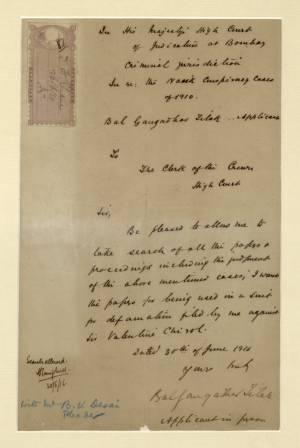 In His Majesty's High Court
of Judicature at Bombay
Criminal jurisdiction
In re: the Nasik Conspiracy Cases
of 1910.
Bal Gangadhar Tilak .. Applicant
To
The Clerk of the Crown
High Court
Sir,
Be pleased to allow me to
take search of all the papers &
proceedings including the judgment
of the above mentioned cases; I want
the papers for being used in a suit
for defamation filed by me against
Sir Valentine Chirol.
Dated 30th of June 1916
Yours truly
Bal Gangadhar Tilak
Applicant in person
Search allowed.
With Mr. B. V. Desai
Pleader